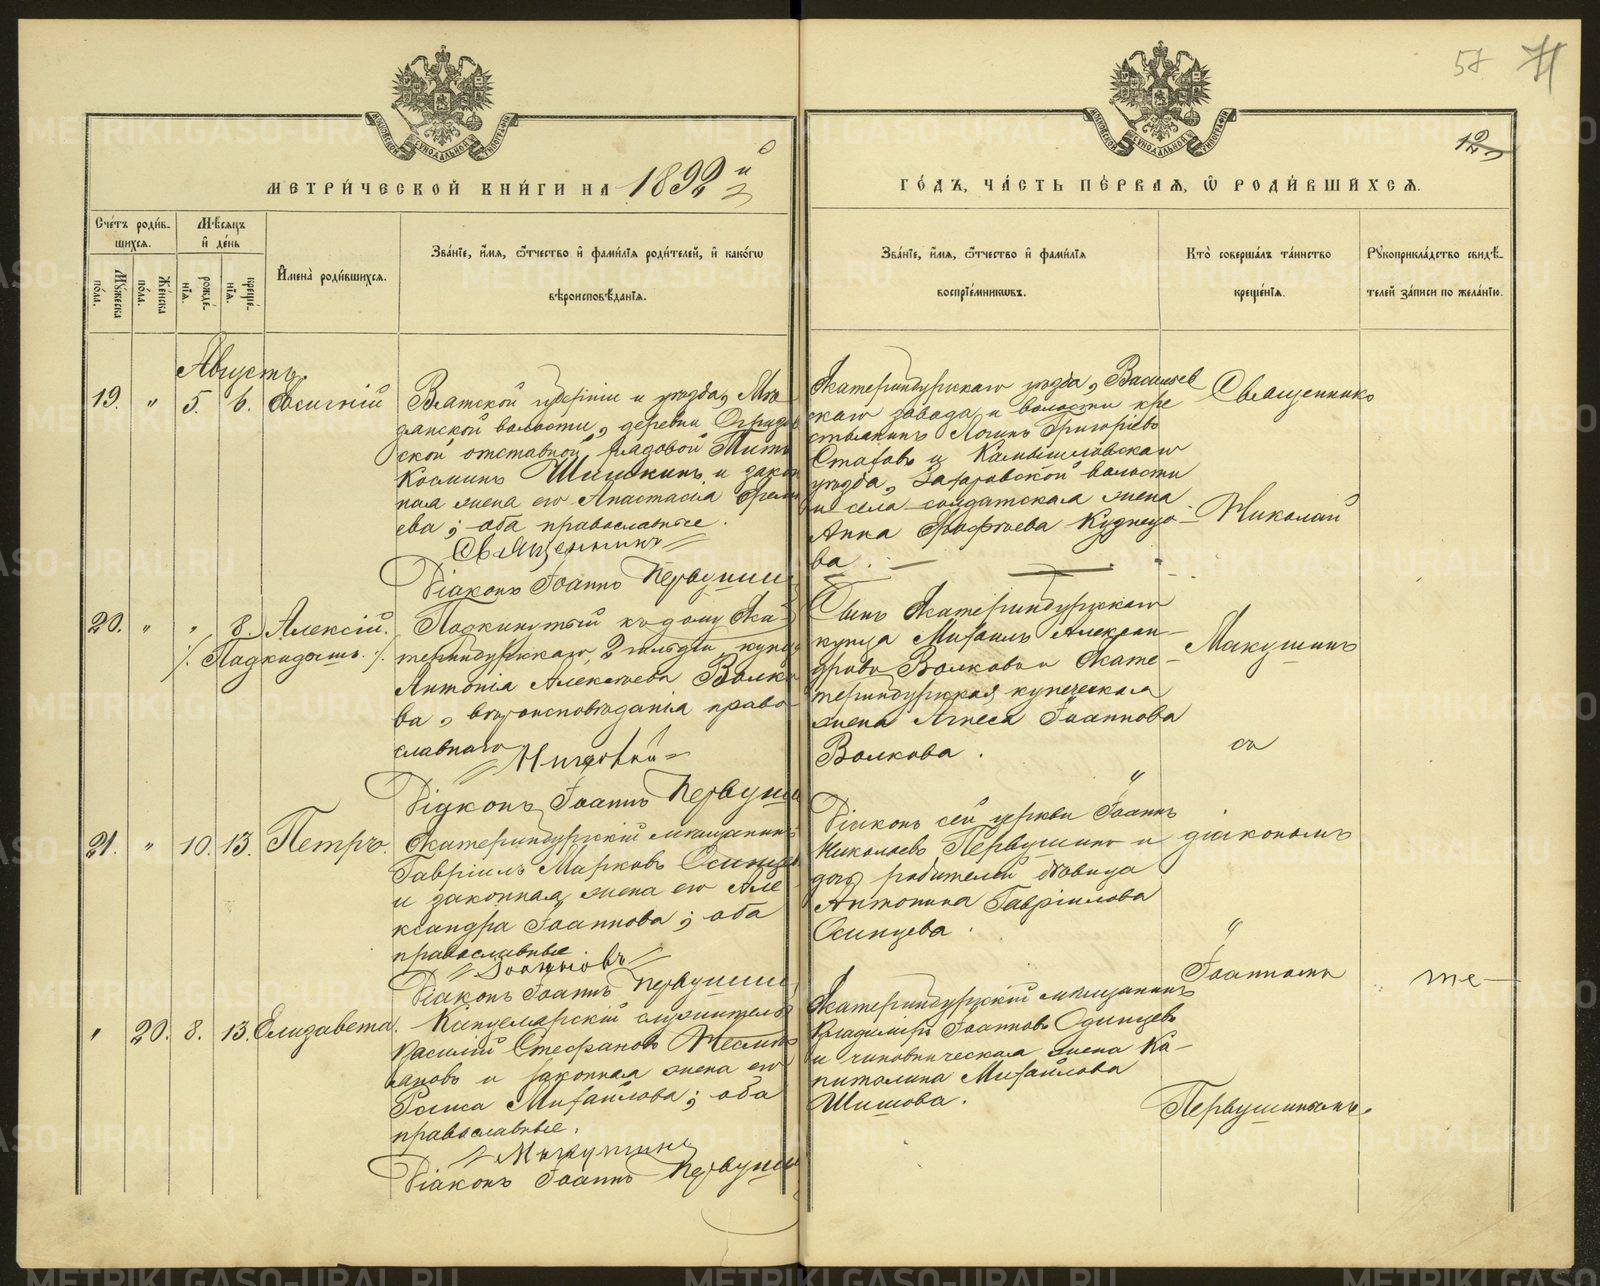 57 71
12
МЕТРИЧЕСКОЙ КНИГИ НА 1892 й
ГОДЪ, ЧАСТЬ ПЕРВАЯ, Ѡ РОДИВШИХСЯ.
Счетъ родив-
шихся.
Мѣсяцъ
и день
Мужеска
пола.
Женска
пола.
рожде-
нія.
креще-
нія.
Имена родившихся.
Званіе, имя, ѿчество и фамилія родителей, и какогѡ
вѣроисповѣданія.
Званіе, имя, ѿчество и фамилія
воспріемникѡвъ.
Кто совершалъ таинство
крещенія.
Рукоприкладство свидѣ-
телей записи по желанію.
Августъ.
19. " 5. 6. Евгеній
Вятской губерніи и уѣзда,
волости, деревни
ской отставной рядовой
Косминъ Шишкинъ и закон
ная жена его Анастасія
ева; оба православные.
Священникъ
Діаконъ Іоаннъ Первушин
Екатеринбургскаго уѣзда, Васильев
скаго завода и волости кре
стьянинъ Логинъ Григоріевъ
и Камышловскаго
уѣзда, волости
и села солдатская жена
Анна Кузнецо-
ва.
Священникъ
Николай
Макушинъ
съ
"
діакономъ
"
Іоанномъ
Первушинымъ.
20. " " 8. Алексій.
Подкидышъ.
Подкинутый къ дому Ека-
теринбургскаго 2 гильдіи купца
Антонія Алексѣева Волко
ва, вѣроисповѣданія право
славнаго
Николай
Діаконъ Іоаннъ Первуши
Сынъ Екатеринбургскаго
купца Михаилъ Алексан-
дровъ Волковъ и Екате-
ринбургская купеческая
жена Агнеса Іоаннова
Волкова.
21. " 10. 13. Петръ.
Екатеринбургскій мѣщанинъ
Гавріилъ Марковъ Осинцев
и законная жена его Але
ксандра Іоаннова; оба
православные.
Діаконъ Іоаннъ Первушин
Діаконъ сей церкви Іоаннъ
Николаевъ Первушинъ и
дочь родителей дѣвица
Антонина Гавріилова
Осинцева.
" 20. 8. 13. Елизавета.
Канцелярскій служитель
Василій Стефановъ
и законная жена его
Раиса Михайлова; оба
православные.
Макушинъ
Діаконъ Іоаннъ Первуши
Екатеринбургскій мѣщанинъ
Владиміръ Іоанновъ Одинцевъ
и чиновническая жена Ка-
питолина Михайлова
Шишова.
METRIKI.GASO-URAL.RU